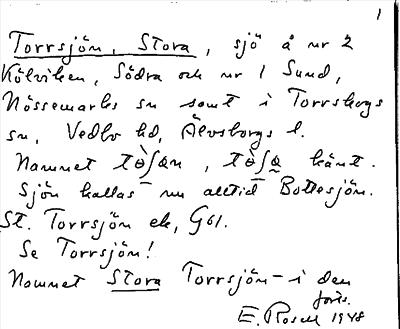 1
Torrsjön, Stora, sjö å nr 2
Kölviken, Södra och nr 1 Sund,
Nössemarks sn samt i Torrskogs
sn, Vedbo hd, Älvsborgs l.
Namnet tö̀ʃǝn, tö̀ʃǝ känt.
Sjön kallas nu alltid Bottesjön.
St. Torrsjön ek, G61.
Se Torrsjön!
Namnet Stora Torrsjön – i den
förts.
E. Rosell 1948